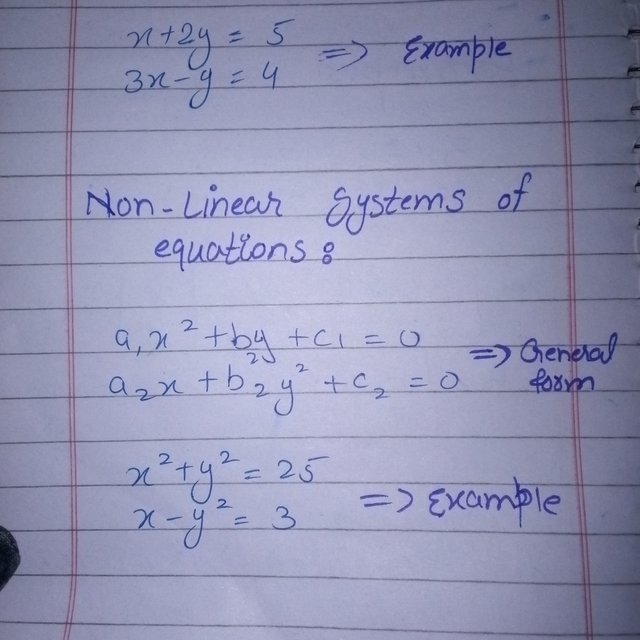 x+2y = 5
3x-y = 4 => Example
Non-Linear Systems of
equations :
a₁x² + by + c₁ = 0
a₂x + b₂y² + c₂ = 0 => General form
x² + y² = 25
x - y² = 3 => Example